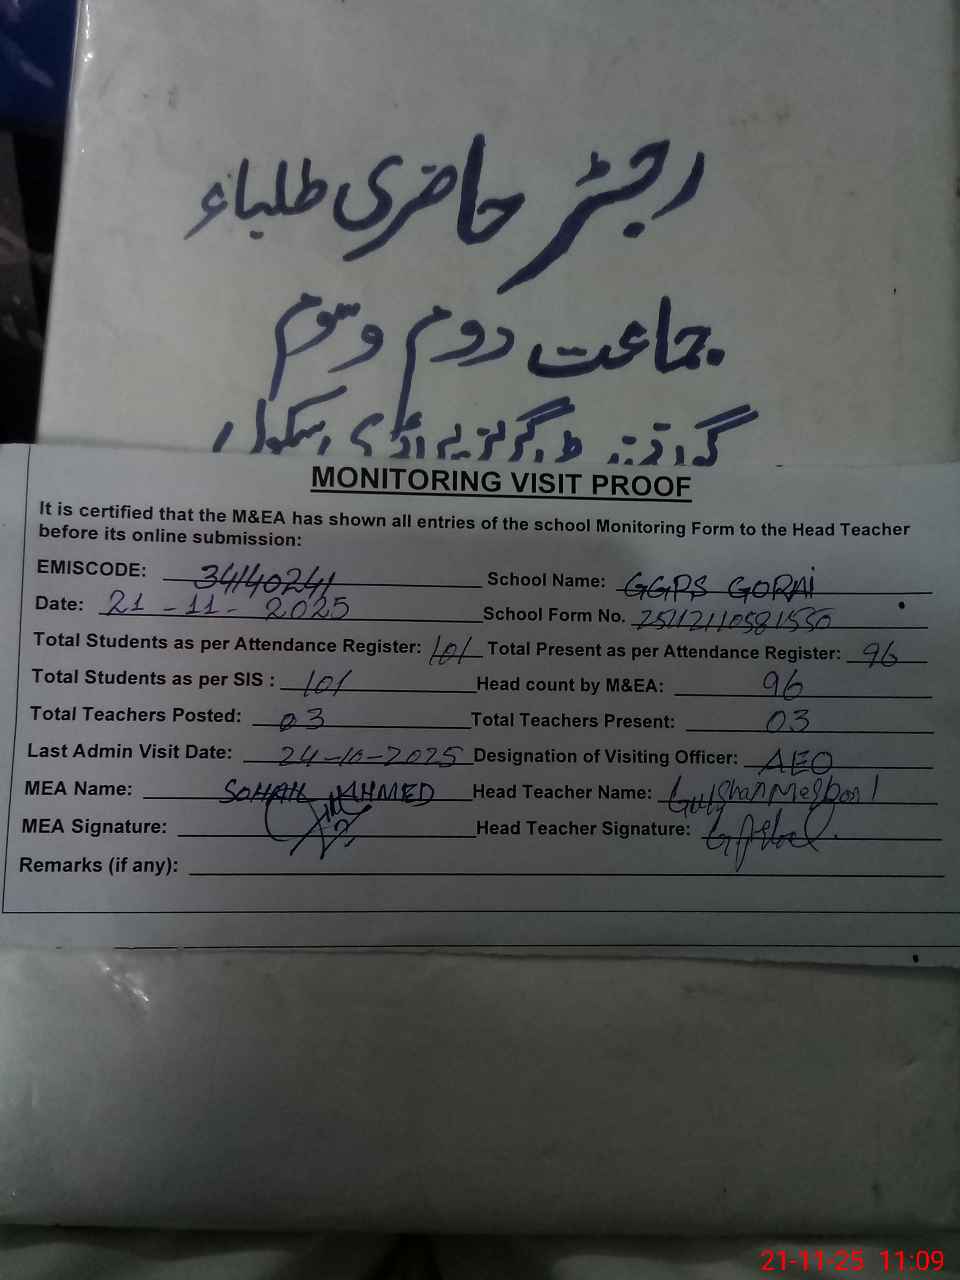 رجسٹر حاضری طلباء
جماعت دوم وسوم
MONITORING VISIT PROOF
It is certified that the M&EA has shown all entries of the school Monitoring Form to the Head Teacher
before its online submission:
EMISCODE: 34140241 School Name: GGPS GORAI
Date: 21-11-2025 School Form No.
Total Students as per Attendance Register: 101 Total Present as per Attendance Register: 96
Total Students as per SIS : 101 Head count by M&EA: 96
Total Teachers Posted: 03 Total Teachers Present: 03
Last Admin Visit Date: 24-10-2025 Designation of Visiting Officer: AEO
MEA Name: SOHAIL AHMED Head Teacher Name: Gulshan
MEA Signature: Head Teacher Signature:
Remarks (if any):
21-11-25 11:09